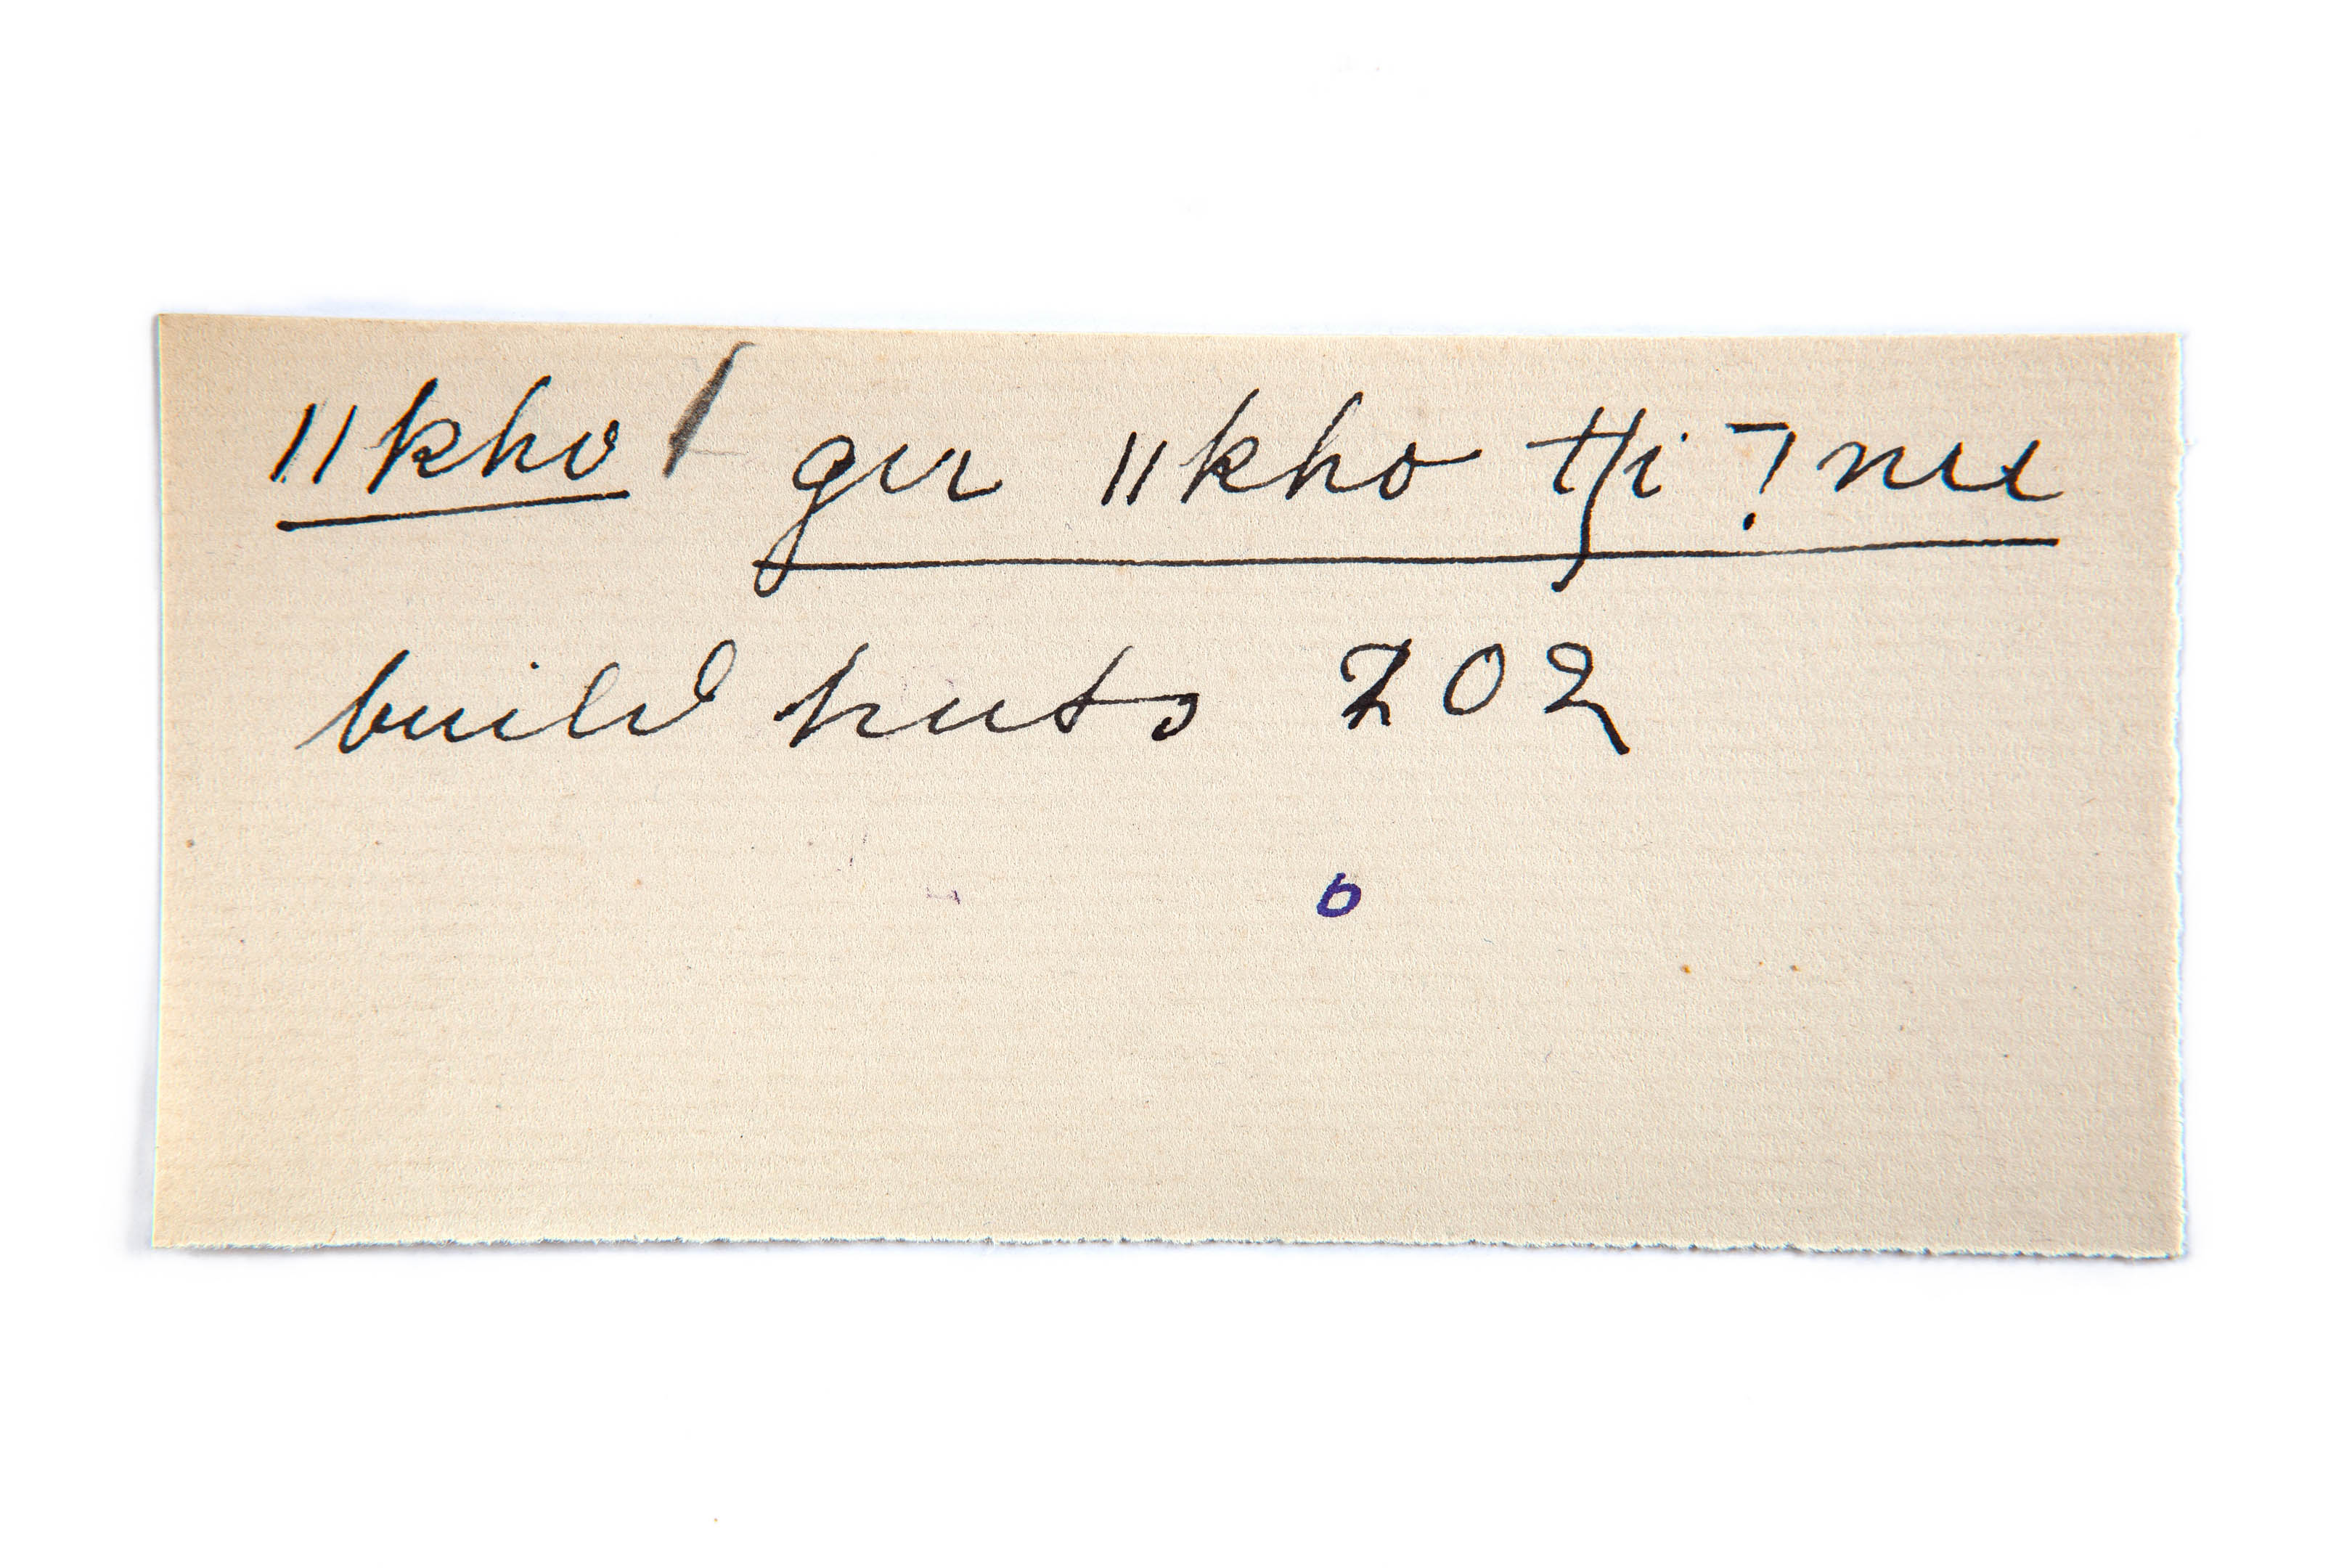 ǁkho gu ǁkho tʃi ˉǃnu
build huts 202
6